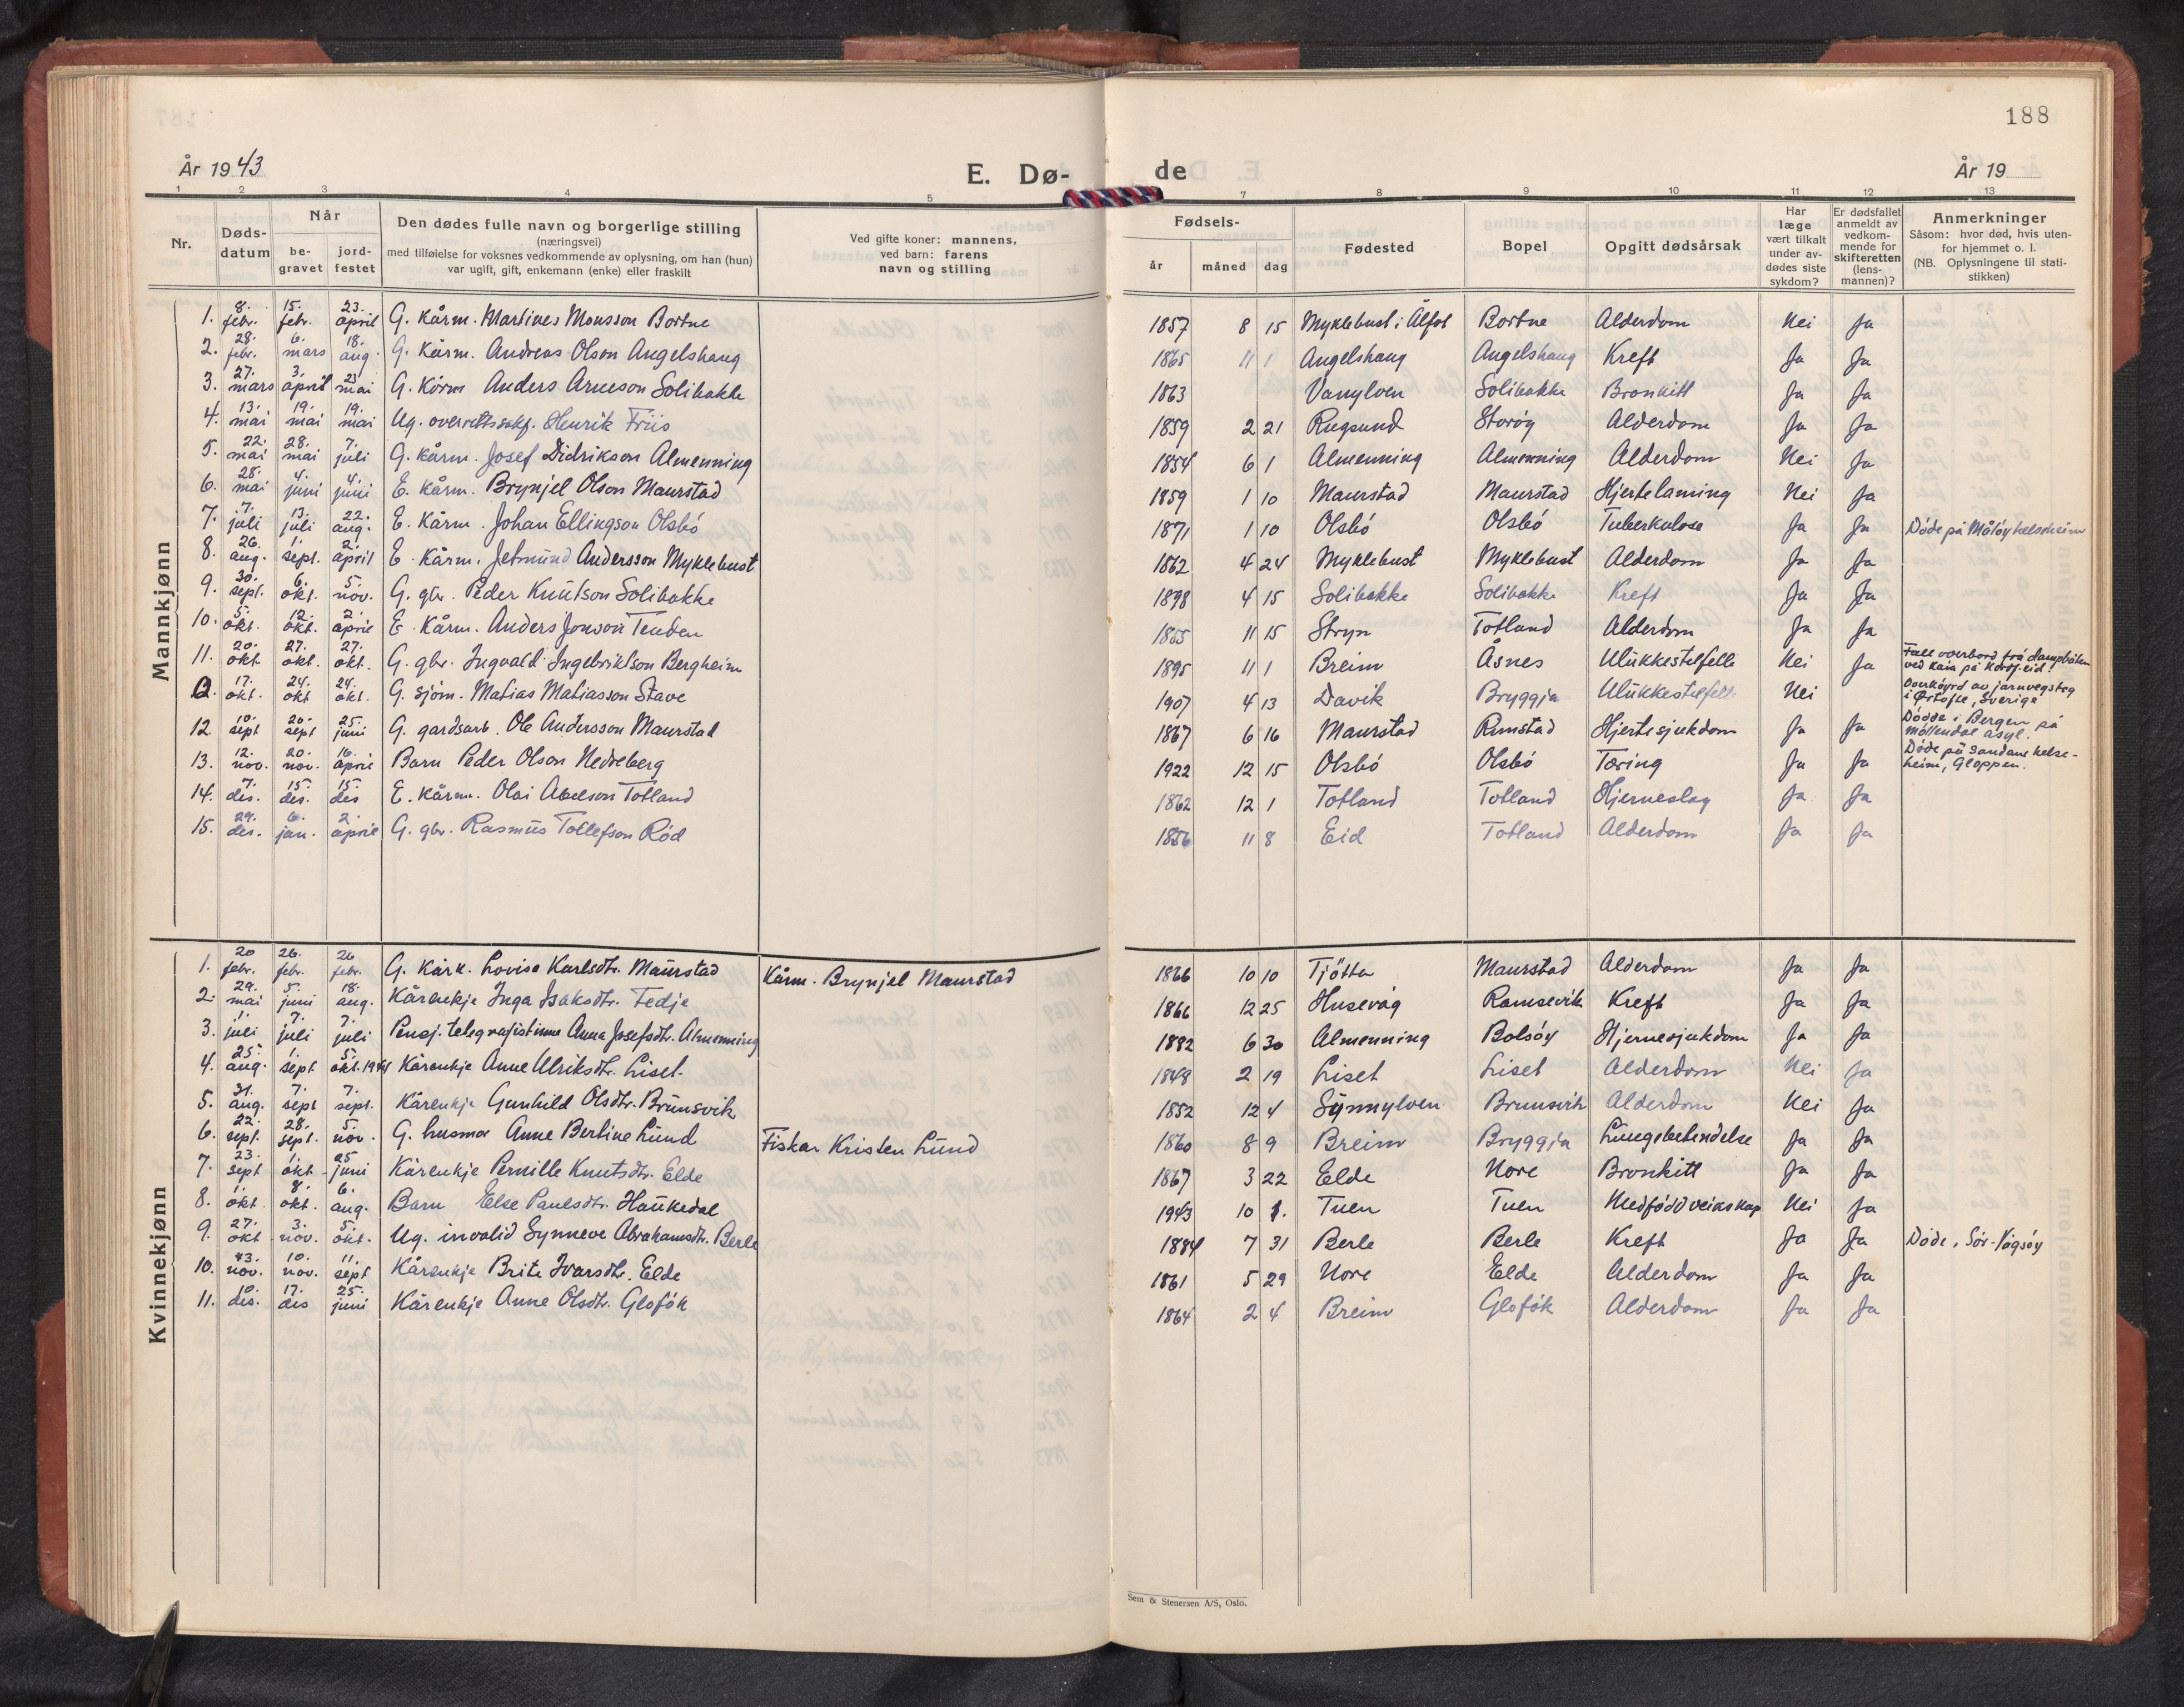 188
År 1943
E. Dø-
de
År 19
1 2 3 4 5 7 8 9 10 11 12 13
Nr.
Døds-
datum
Når
be-
gravet
jord-
festet
Den dødes fulle navn og borgerlige stilling
(næringsvei)
med tilføielse for voksnes vedkommende av oplysning, om han (hun)
var ugift, gift, enkemann (enke) eller fraskilt
Ved gifte koner: mannens,
ved barn: farens
navn og stilling
Fødsels-
år måned dag
Fødested
Bopel
Opgitt dødsårsak
Har
læge
vært tilkalt
under av-
dødes siste
sykdom?
Er dødsfallet
anmeldt av
vedkom-
mende for
skifteretten
(lens-
mannen)?
Anmerkninger
Såsom: hvor død, hvis uten-
for hjemmet o. l.
(NB. Oplysningene til stati-
stikken)
Mannkjønn
1. 8. febr. 15. febr. 23. april G. kårm. Martines Monsson Bortne 1857 8 15 Myklebust i Ålfot Bortne Alderdom Nei Ja
2. 28. febr. 6. mars 18. aug. G. kårm. Andreas Olson Angelshaug 1865 11 1 Angelshaug Angelshaug Kreft Ja Ja
3. 27. mars 3. april 23 mai G. kårm Anders Arneson Solibakke 1863 Vanylven Solibakke Bronkitt Ja Ja
4. 13. mai 19. mai 19. mai Ug. overrettssakf. Henrik Friis 1859 2 21 Rugsund Storøy Alderdom Ja Ja
5. 22. mai 28. mai 7. juli G. kårm. Josef Didrikson Almenning 1854 6 1 Almenning Almenning Alderdom Nei Ja
6. 28. mai 4. juni 4. juni E. kårm. Brynjel Olson Maurstad 1859 1 10 Maurstad Maurstad Hjertelaming Nei Ja
7. 7. juli 13. juli 22. aug. E. kårm. Johan Ellingson Olsbó 1871 1 10 Olsbó Olsbó Tuberkulose Ja Ja Döde på Målöy helseheim
8. 26. aug. 1. sept. 2. april E. kårm. Jetmund Andersson Myklebust 1862 4 24 Myklebust Myklebust Alderdom Ja Ja
9. 30. sept. 6. okt. 5. nov. G. gbr. Peder Knutson Solibakke 1898 4 15 Solibakke Solibakke Kreft Ja Ja
10. 5. okt. 12. okt. 2. april E. kårm. Anders Jonson Tenden 1855 11 15 Stryn Totland Alderdom Ja Ja
11. 20. okt. 27. okt. 27. okt. G. gbr. Ingvald Ingebriktson Bergheim 1895 11 1 Breim Åsnes Ulukkestelfelle Nei Ja Fall overbord frå dampbåten
ved kaia på Nordfj.eid!
17. okt. 24. okt 24. okt. G. sjöm. Matias Matiasson Stave 1907 4 13 Davik Bryggja Ulukkestelfelle Nei Overköyrd av jarnvegstog
i Örtofte, Sverige
12 10. sept 20. sept 25. juni G. gardsarb. Ole Andersson Maurstad 1867 6 16 Maurstad Rimstad Hjertesjukdom Ja Ja Dödde i Bergen på
Möllendal asyl.
13. 12. nov. 20. nov. 16. april Barn Peder Olson Nedreberg 1922 12 15 Olsbó Olsbó Tæring Ja Ja Döde på Sandane helse-
heim, Gloppen.
14. 7. des. 15. des. 15. des E. kårm. Olai Abelson Totland 1862 12 1 Totland Totland Hjerneslag Ja Ja
15. 29. des. 6. jan. 2. april G. gbr. Rasmus Tollefson Röd 1856 11 8 Eid Totland Alderdom Ja Ja
Kvinnekjønn
1. 20 febr. 26. febr. 26 febr. G. kårk. Lovise Karlsdtr. Maurstad Kårm. Brynjel Maurstad 1866 10 10 Tjötta Maurstad Alderdom Ja Ja
2. 29. mai 5. juni 18. aug. Kårenkje Inga Isaksdtr. Tedje 1866 12 25 Husevåg Ramsevik Kreft Ja Ja
3. 1. juli 7. juli 7. juli Pensj. telegrafistinne Anna Josefsdtr. Almenning 1882 6 30 Almenning Bolsöy Hjernesjukdom Ja Ja
4. 25. aug. 1. sept. 5. okt. 1944 Kårenkje Anne Ulriksdtr. Liset 1848 2 19 Liset Liset Alderdom Nei Ja
5. 31. aug. 7. sept 7. sept. Kårenkje Gunhild Olsdtr. Brunsvik 1852 12 4 Synnylven Brunsvik Alderdom Nei Ja
6. 22. sept. 28. sept. 5. nov. G. husmor Anne Bertine Lund Fiskar Kristen Lund 1860 8 9 Breim Bryggja Lungebetendelse Ja Ja
7. 23. sept 1. okt. 25 juni Kårenkje Pernille Knutsdtr. Elde 1867 3 22 Elde Nore Bronkitt Ja Ja
8. 1. okt. 8. okt. 6. aug. Barn Else Paulsdtr. Haukedal 1943 10 1. Tuen Tuen Medfödd veikskap Nei Ja
9. 27. okt 3. nov. 5. okt. Ug. invalid Synneve Abrahamsdtr. Berle 1884 7 31 Berle Berle Kreft Ja Ja Döde i Sör-Vågsöy
10. nov. 10. nov. 11. sept Kårenkje Brite Ivarsdtr. Elde 1861 5 29 Nore Elde Alderdom Ja Ja
11. 10. des. 17. des 25. juni Kårenkje Anne Olsdtr. Glofók 1864 2 4 Breim Glofók Alderdom Ja Ja
Sem & Stenersen A/S, Oslo.